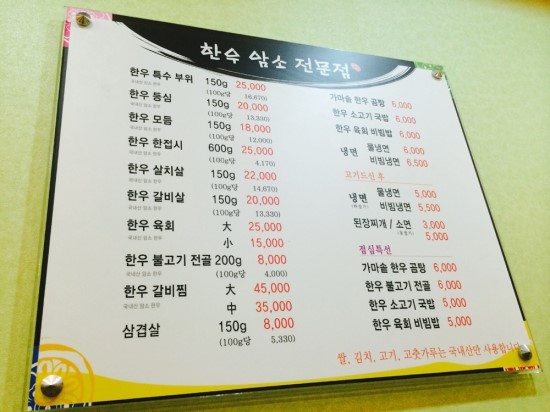 한우 암소 전문점
한우 특수 부위 150g 25,000
국내산 암소 한우 (100g당 16,670)
한우 등심 150g 20,000
국내산 암소 한우 (100g당 13,330)
한우 모듬 150g 18,000
국내산 암소 한우 (100g당 12,000)
한우 한접시 600g 25,000
국내산 암소 한우 (100g당 4,170)
한우 살치살 150g 22,000
국내산 암소 한우 (100g당 14,670)
한우 갈비살 150g 20,000
국내산 암소 한우 (100g당 13,330)
한우 육회 大 25,000
국내산 암소 한우
小 15,000
한우 불고기 전골 200g 8,000
국내산 암소 한우 (100g당 4,000)
한우 갈비찜 大 45,000
국내산 암소 한우
中 35,000
삼겹살 150g 8,000
(100g당 5,330)
가마솥 한우 곰탕 6,000
한우 소고기 국밥 6,000
한우 육회 비빔밥 6,000
냉면 물냉면 6,000
비빔냉면 6,500
고기드신 후
냉면 물냉면 5,000
비빔냉면 5,500
된장찌개 / 소면 3,000
5,000
점심특선
가마솥 한우 곰탕 6,000
한우 불고기 전골 6,000
한우 소고기 국밥 5,000
한우 육회 비빔밥 5,000
쌀, 김치, 고기, 고춧가루는 국내산만 사용합니다